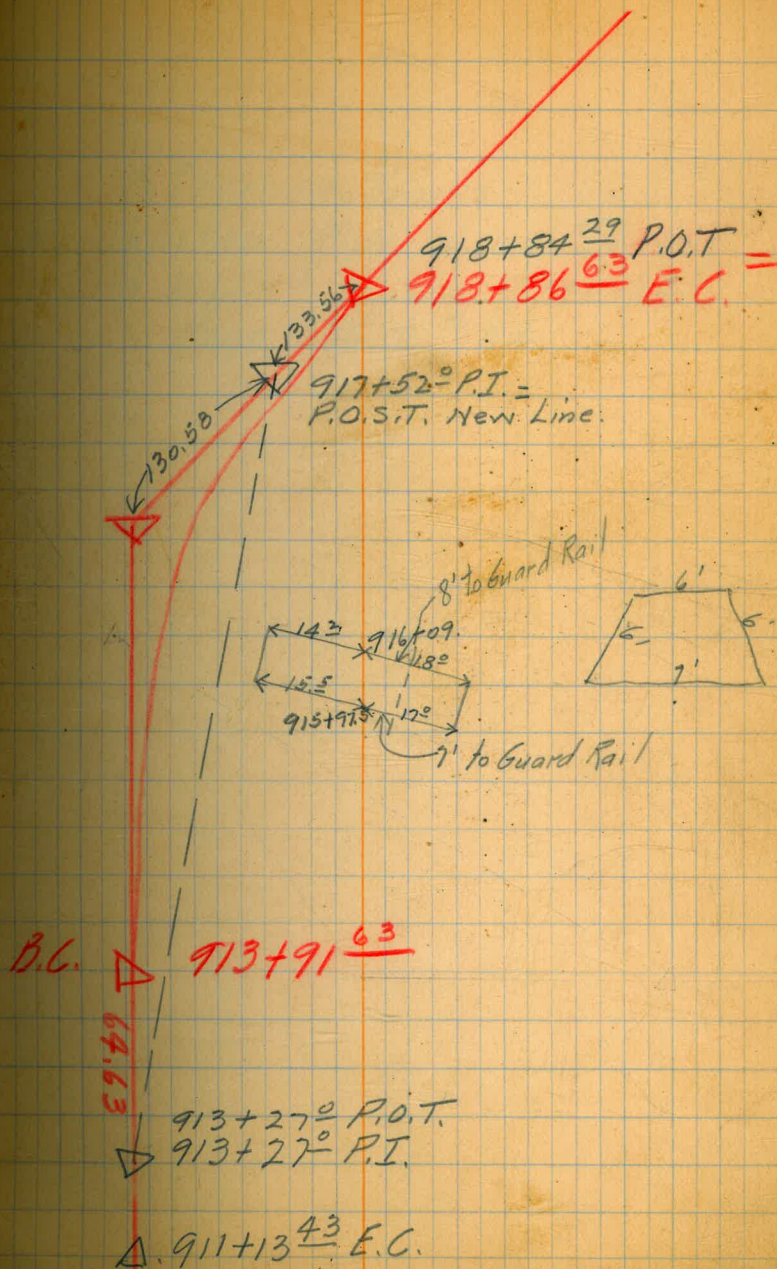 918+84 29 P.O.T =
918+86 63 E.C.
133.56
917+52 0 P.I. =
P.O.S.T. New Line.
130.58
8' to Guard Rail
6'
14 3
916+09.
18 0
7'
15.5
915+97.5
17 0
7' to Guard Rail
B.C. 913+91 63
64.63
913+27 0 P.O.T.
913+27 0 P.I.
911+13 43 E.C.